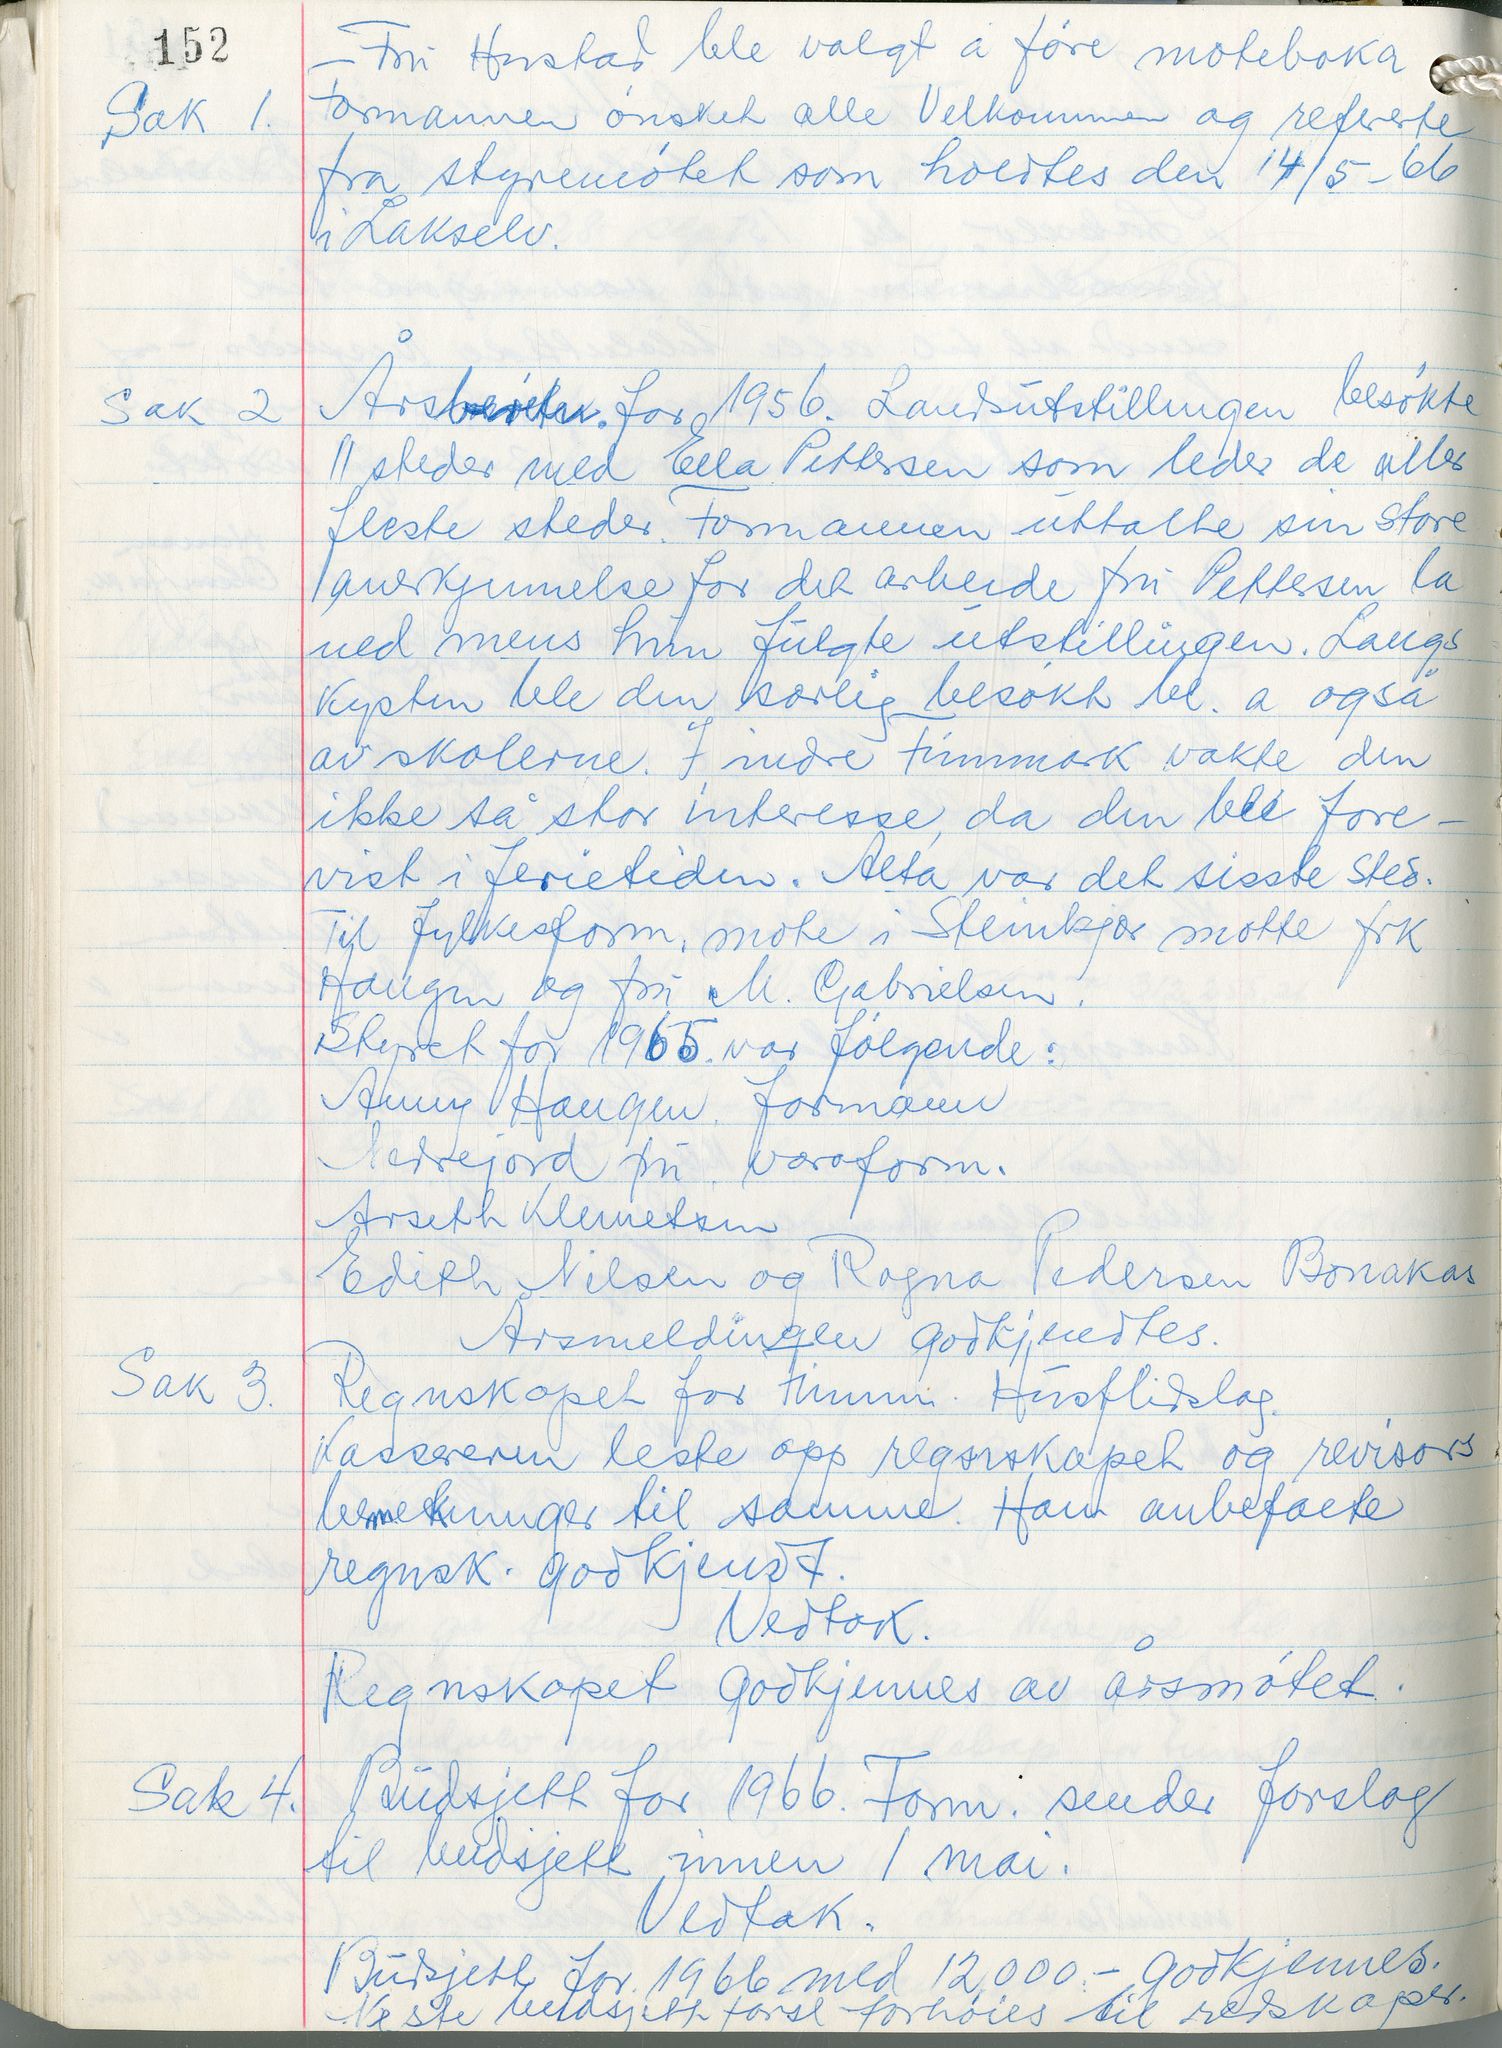 152
Fru Hustad ble valgt å føre møteboka
Sak 1. Formannen ønsket alle Velkommen og refererte
fra styremøtet som holdtes den 14/5-66
i Lakselv.
Sak 2 Årsberetn. for 1956. Landsutstillingen besøkte
11 steder med Ella Pettersen som leder de aller
fleste steder. Formannen uttalte sin store
anerkjennelse for det arbeide fru Pettersen la
ned mens hun fulgte utstillingen. Langs
Kysten ble den særlig besøkt bl. a også
av skolerne. I indre Finnmark vakte den
ikke så stor interesse, da den ble fore-
vist i ferietiden. Alta var det sisste sted.
Til fylkesform. møte i Steinkjær møtte frk
Haugen og fru M. Gabrielsen.
Styret for 1965. var følgende:
Anny Haugen. formann
Nedrejord fru varaform.
Arseth Klemetsen
Edith Nilsen og Ragna Pedersen Bonakas
Årsmeldingen godkjendtes.
Sak 3. Regnskapet for Finnm. Husflidslag.
Kassereren leste opp regnskapet og revisors
bemerkninger til samme. Han anbefalte
regnsk. godkjendt.
Vedtak.
Regnskapet godkjennes av årsmøtet.
Sak 4. Budsjett for 1966. Form. sender forslag
til budsjett innen 1 mai.
Vedtak.
Budsjett for 1966 med 12,000.- godkjennes.
Neste budsjett forsl forhøies til redskaper.